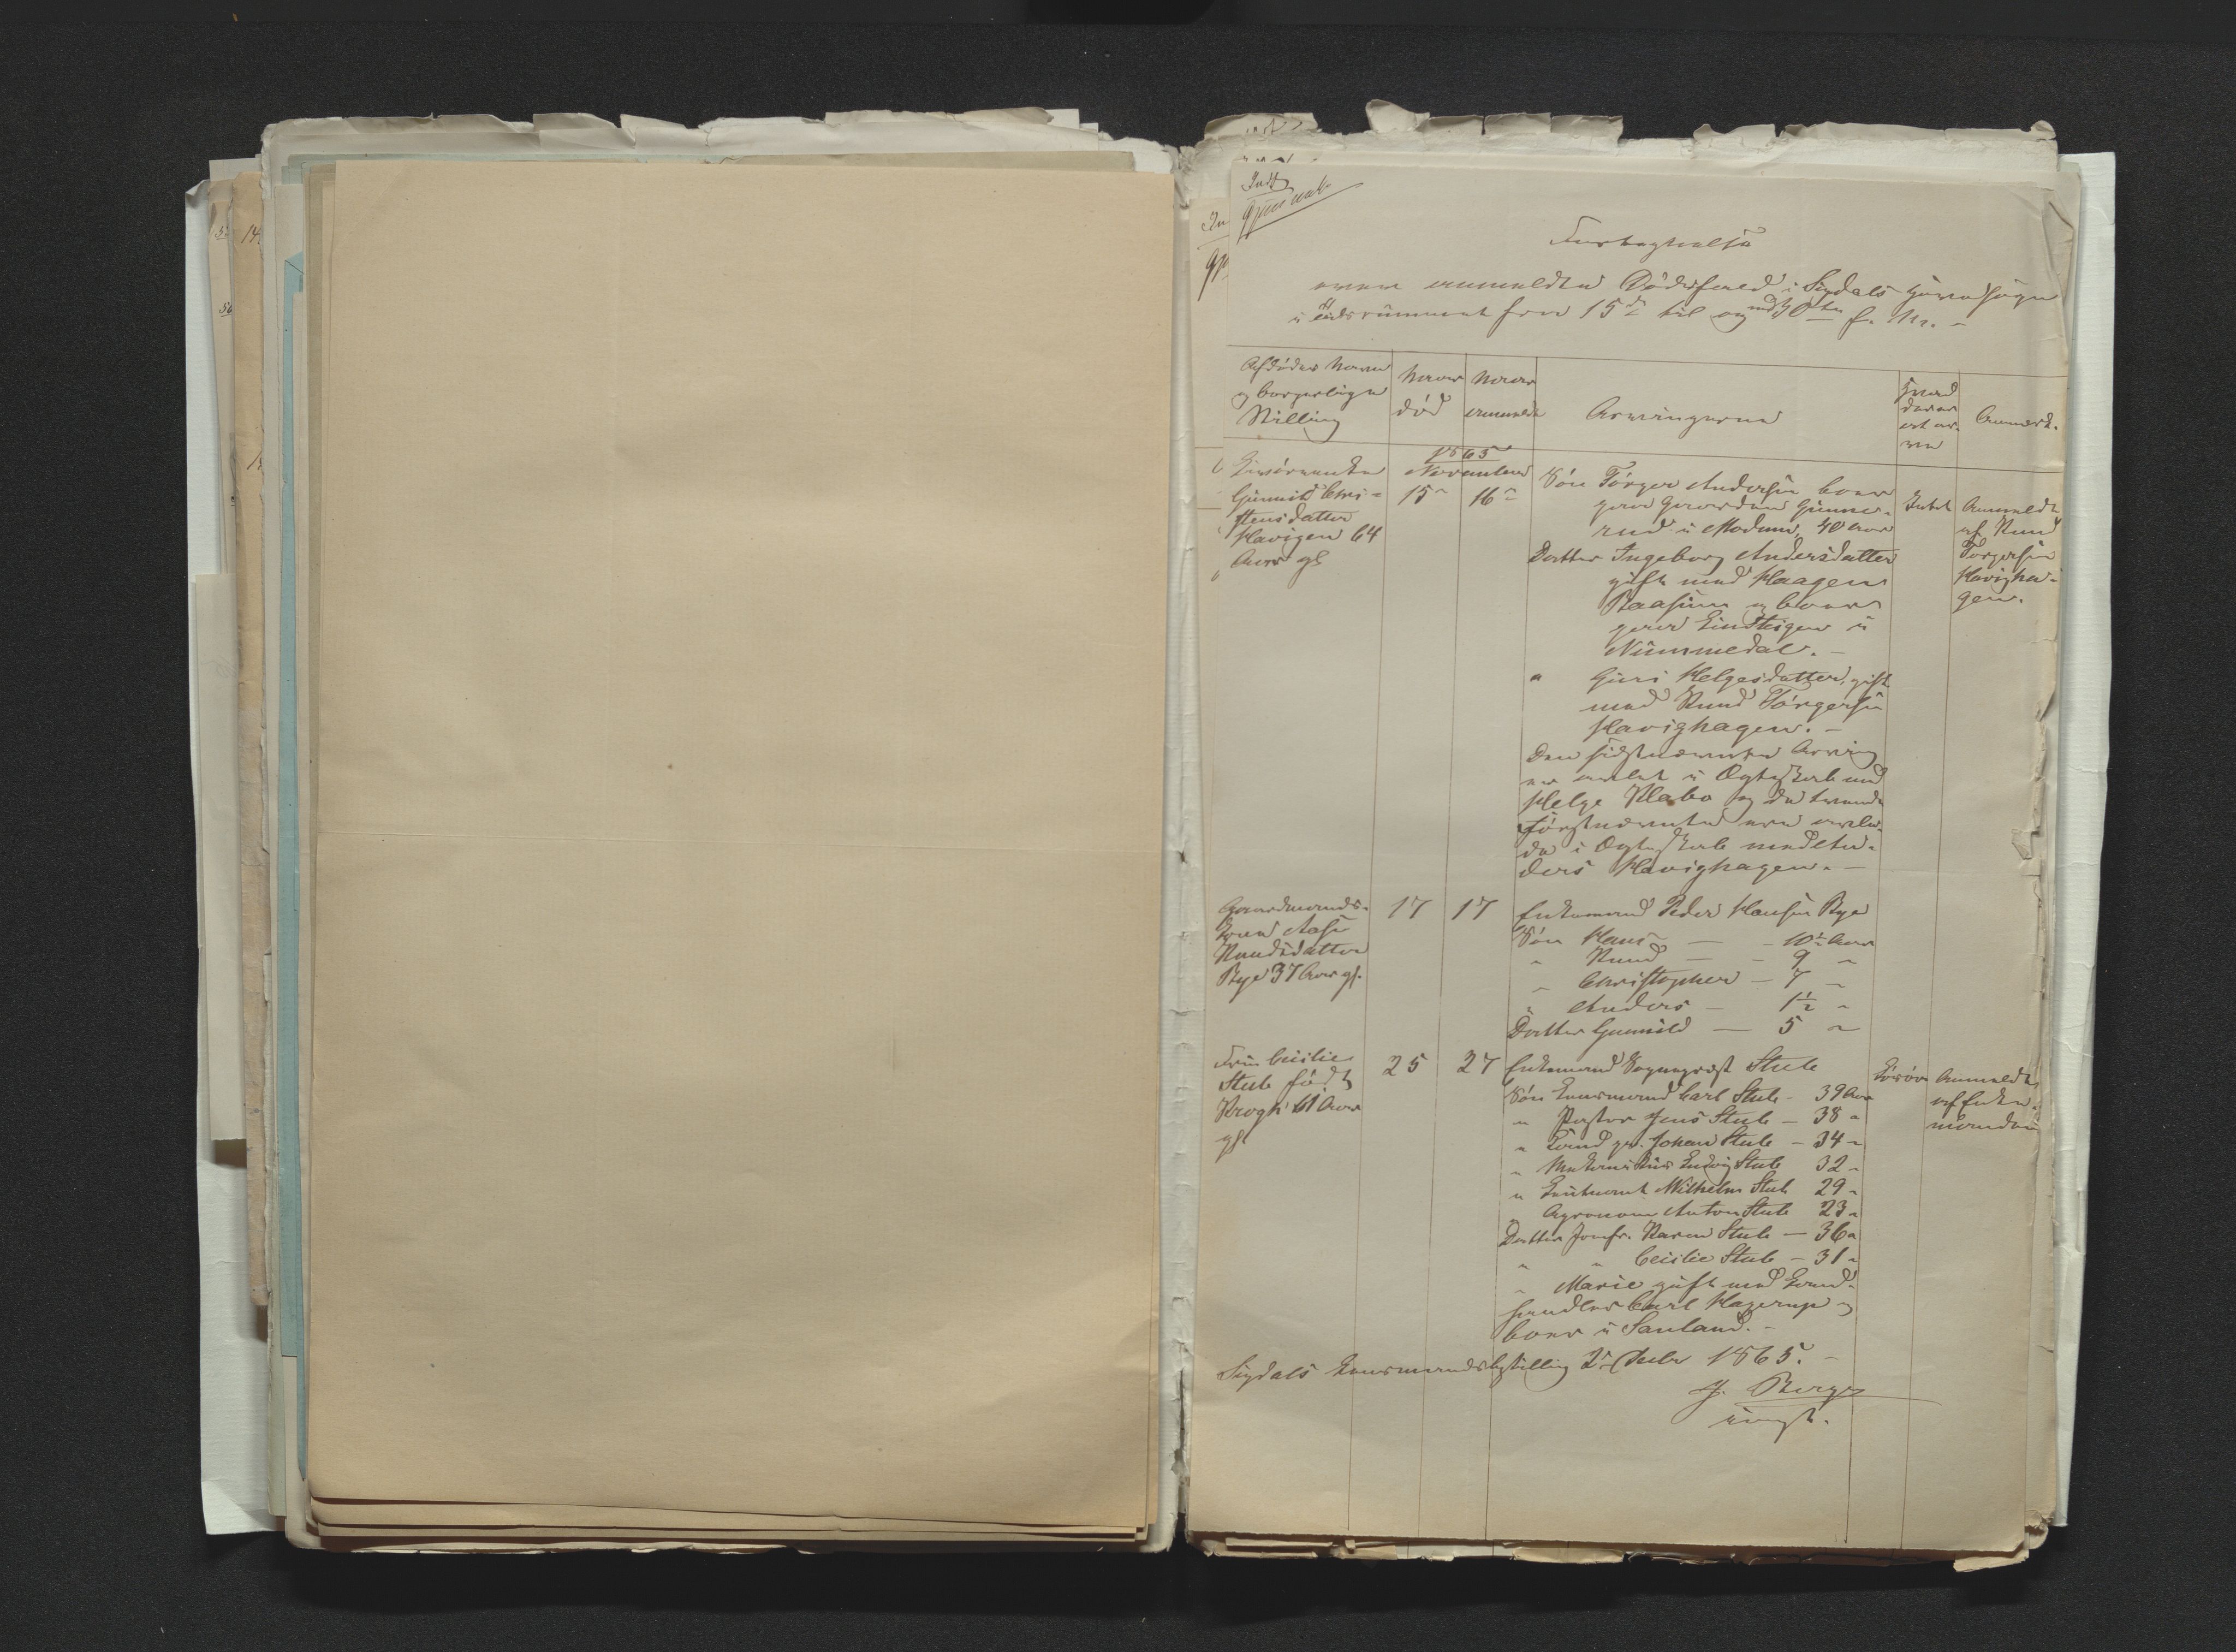 Indt
Gjennemk
Fortegnelse
over anmeldte Dödsfald i Sigdals Hovedsogn
i Tidsrummet fra 15de til og med 30te f. M. –
Afdödes Navn
og borgerlige
Stilling
Naar
död
Naar
anmeldt
Arvingerne
Hvad
der er
at ar-
ve
Anmerk.
1865
November
Gunnild Chri-
stensdatter
Havigen 64
Aar gl
15de
16de
Sön Törger Andersen boer
paa Gaarden Gunne-
rud i Modum, 40 Aar
Datter Ingeborg Andersdatter
gift med Haagen
Raaseum og boer
paa
Nummedal. –
" Guri Helgesdatter, gift
med Knud Törgersen
Havighagen. –
Den sidstnævnte Arving
er avlet i Ægteskab med
Helge Klabo og de tvende
förstnævnte ere avle-
de i Ægteskab med An-
ders Havighagen. –
Intet
Anmeldt
af Knud
Törgersen
Havigha-
gen.
Gaardmands-
kone Aase
Knudsdatter
Bye 37 Aar gl.
17
17
Enkemand Peder Hansen Bye
Sön Hans — - 10½ Aar
" Knud — - 9 "
" Christopher — 7 "
" Anders — 1½ "
Datter Gunnild — 5 "
Fru Cecilie
Stub född
Krogh 61 Aar
gl
25
27
Enkemand Sogneprest Stub
Sön Lensmand Carl Stub - 39 Aar
" Pastor Jens Stub — 38 "
" Cand. Johan Stub — 34 "
" Mekanikus Ludvig Stub 32 "
" Lieutnant Wilhelm Stub 29 "
" Agronom Anton Stub 23 "
Datter Jomfr. Karen Stub — 36 "
" " Cecilie Stub — 31 "
" Marie gift med Land-
handler Carl Hagerup og
boer i Sauland. –
Anmeldt
af Enke-
manden
Sigdals Lensmandsbestilling 2den Decbr 1865. –
J. Berger